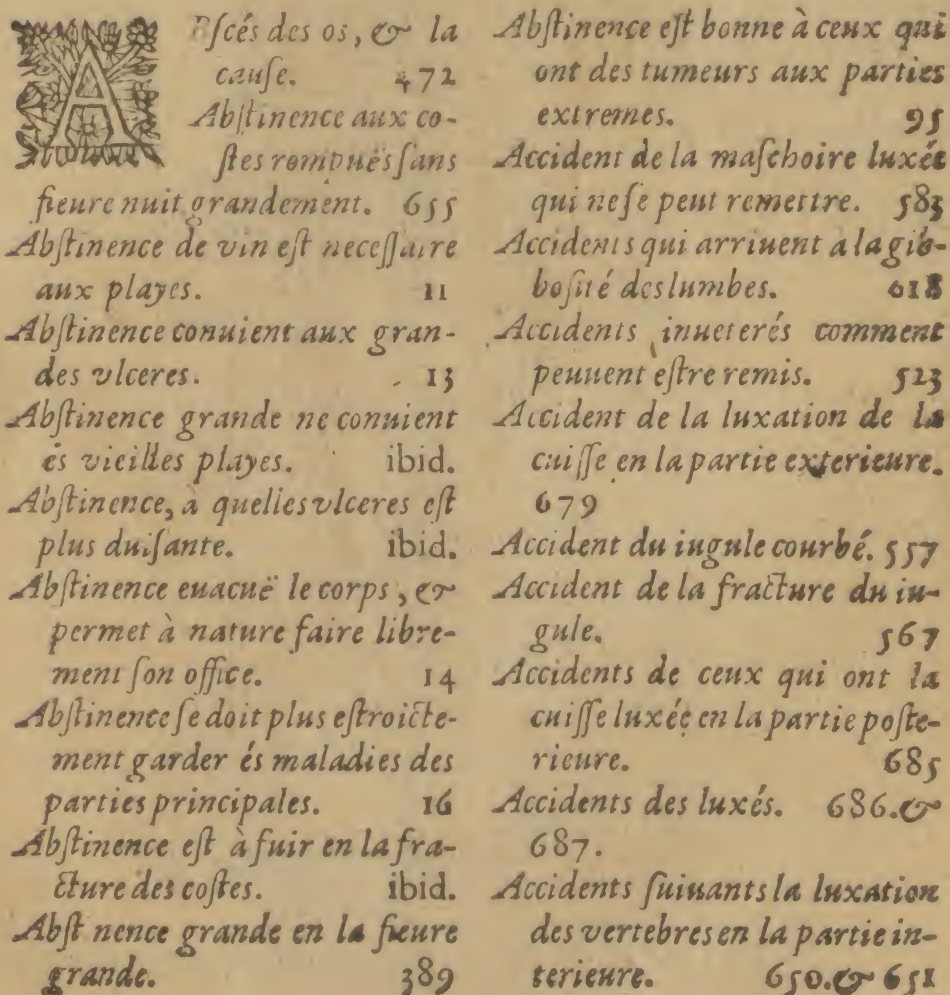 ABſcés des os, & la
cauſe. 472
Abſtinence aux co-
ſtes rompuës ſans
fieure nuit grandement. 655
Abſtinence de vin eſt neceſſaire
aux playes. 11
Abſtinence conuient aux gran-
des vlceres. 13
Abſtinence grande ne conuient
és vieilles playes. ibid.
Abſtinence, à quelles vlceres eſt
plus duiſante. ibid.
Abſtinence euacuë le corps, &
permet à nature faire libre-
ment ſon office. 14
Abſtinence ſe doit plus eſtroicte-
ment garder és maladies des
parties principales. 16
Abſtinence eſt à fuir en la fra-
cture des coſtes. ibid.
Abſt nence grande en la fieure
grande. 389
Abſtinence eſt bonne à ceux qui
ont des tumeurs aux parties
extremes. 95
Accident de la maſchoire luxée
qui ne ſe peut remettre. 583
Accidents qui arriuent a la gib-
boſité des lumbes. 618
Accidents inueterés comment
peuuent eſtre remis. 523
Accident de la luxation de la
cuiſſe en la partie exterieure.
679
Accident du iugule courbé. 557
Accident de la fracture du iu-
gule. 567
Accidents de ceux qui ont la
cuiſſe luxée en la partie poſte-
rieure. 685
Accidents des luxés. 686. &
687.
Accidents ſuiuants la luxation
des vertebres en la partie in-
terieure. 650. & 651